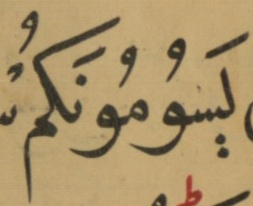 يَسُومُونَكُمْ